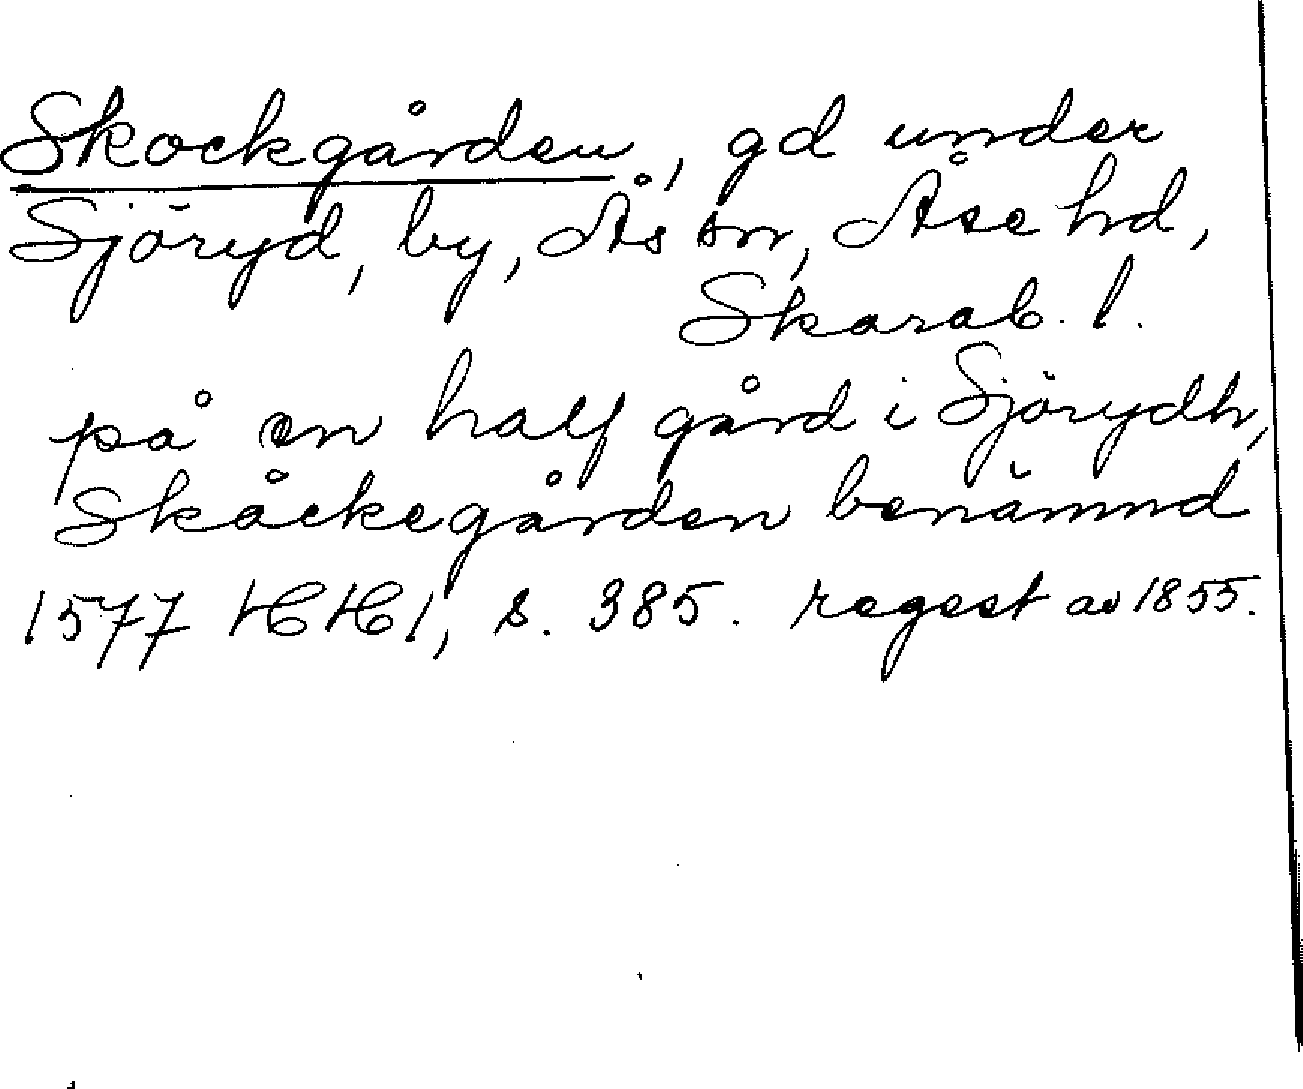 Skockgården, gd under
Sjöryd, by, Ås sn, Åse hd,
Skarab. l.
på en half gård i Sjörydh,
Skåckegården benämnd
1577 HH 1, s. 385. regest av 1855.